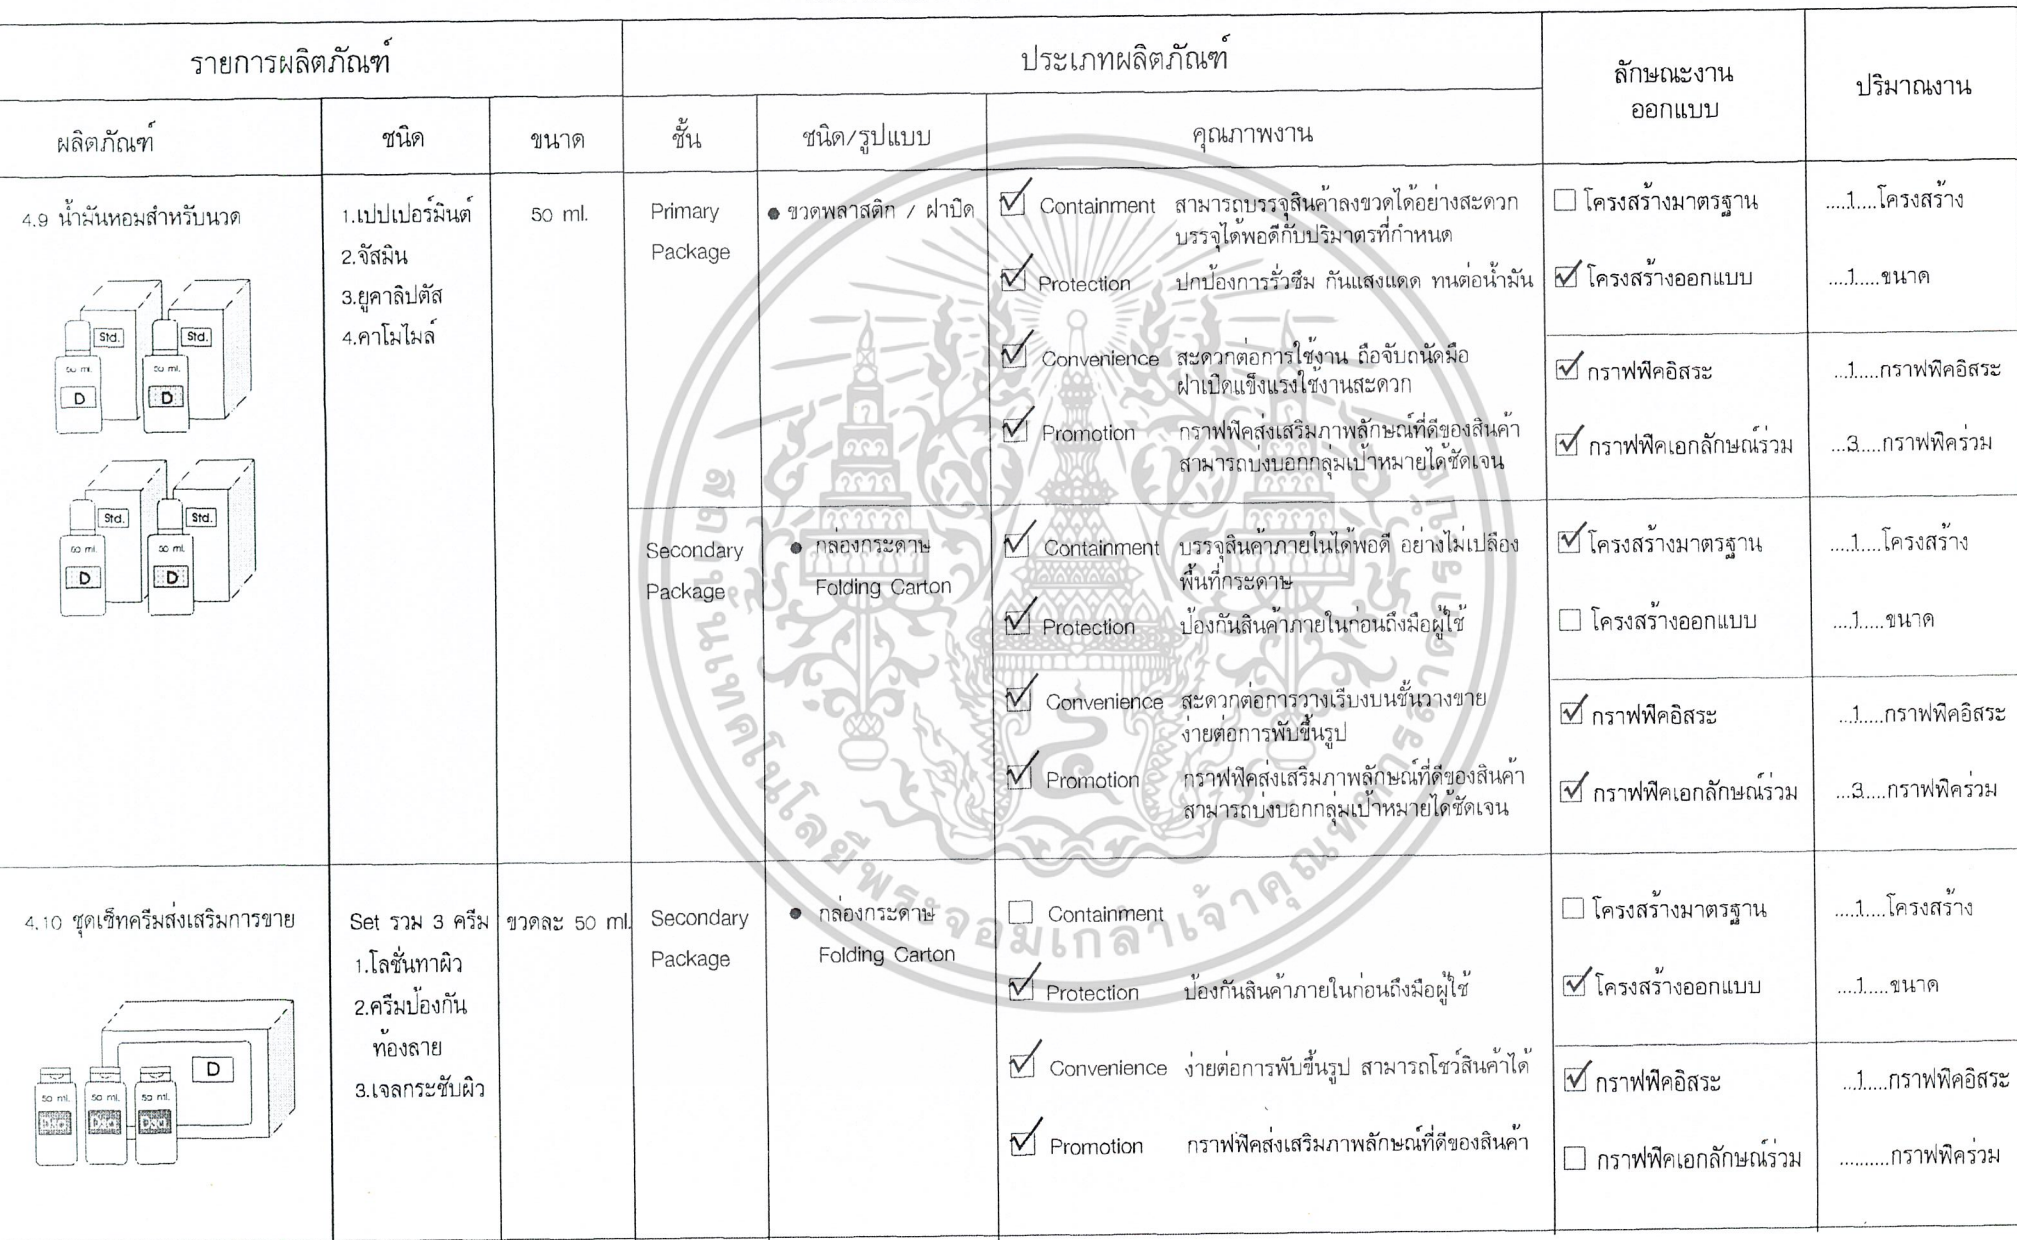 รายการผลิตภัณฑ์
ประเภทผลิตภัณฑ์
ลักษณะงาน
ออกแบบ
ปริมาณงาน
ผลิตภัณฑ์
ชนิด
ขนาด
ชั้น
ชนิด/รูปแบบ
คุณภาพงาน
4.9 น้ำมันหอมสำหรับนวด
1.เปปเปอร์มินต์
2.จัสมิน
3.ยูคาลิปตัส
4.คาโมไมล์
50 ml.
Primary
Package
● ขวดพลาสติก / ฝาปิด
☑ Containment สามารถบรรจุสินค้าลงขวดได้อย่างสะดวก
บรรจุได้พอดีกับปริมาตรที่กำหนด
☑ Protection ปกป้องการรั่วซึม กันแสงแดด ทนต่อน้ำมัน
☑ Convenience สะดวกต่อการใช้งาน ถือจับถนัดมือ
ฝาเปิดแข็งแรงใช้งานสะดวก
☑ Promotion กราฟฟิคส่งเสริมภาพลักษณ์ที่ดีของสินค้า
สามารถบ่งบอกกลุ่มเป้าหมายได้ชัดเจน
☐ โครงสร้างมาตรฐาน
☑ โครงสร้างออกแบบ
☑ กราฟฟิคอิสระ
☑ กราฟฟิคเอกลักษณ์ร่วม
....1....โครงสร้าง
....1.....ขนาด
...1.....กราฟฟิคอิสระ
...3.....กราฟฟิคร่วม
Std.
Std.
50 ml.
50 ml.
D
D
Std.
Std.
50 ml.
50 ml.
D
D
Secondary
Package
● กล่องกระดาษ
Folding Carton
☑ Containment บรรจุสินค้าภายในได้พอดี อย่างไม่เปลือง
พื้นที่กระดาษ
☑ Protection ป้องกันสินค้าภายในก่อนถึงมือผู้ใช้
☑ Convenience สะดวกต่อการวางเรียงบนชั้นวางขาย
ง่ายต่อการพับขึ้นรูป
☑ Promotion กราฟฟิคส่งเสริมภาพลักษณ์ที่ดีของสินค้า
สามารถบ่งบอกกลุ่มเป้าหมายได้ชัดเจน
☑ โครงสร้างมาตรฐาน
☐ โครงสร้างออกแบบ
☑ กราฟฟิคอิสระ
☑ กราฟฟิคเอกลักษณ์ร่วม
....1....โครงสร้าง
....1.....ขนาด
...1.....กราฟฟิคอิสระ
...3....กราฟฟิคร่วม
4.10 ชุดเซ็ทครีมส่งเสริมการขาย
Set รวม 3 ครีม
1.โลชั่นทาผิว
2.ครีมป้องกัน
ท้องลาย
3.เจลกระชับผิว
ขวดละ 50 ml.
Secondary
Package
● กล่องกระดาษ
Folding Carton
☐ Containment
☑ Protection ป้องกันสินค้าภายในก่อนถึงมือผู้ใช้
☑ Convenience ง่ายต่อการพับขึ้นรูป สามารถโชว์สินค้าได้
☑ Promotion กราฟฟิคส่งเสริมภาพลักษณ์ที่ดีของสินค้า
☐ โครงสร้างมาตรฐาน
☑ โครงสร้างออกแบบ
☑ กราฟฟิคอิสระ
☐ กราฟฟิคเอกลักษณ์ร่วม
....1....โครงสร้าง
....1.....ขนาด
...1.....กราฟฟิคอิสระ
..........กราฟฟิคร่วม
D
50 ml.
50 ml.
50 ml.
สถาบันเทคโนโลยีพระจอมเกล้าเจ้าคุณทหารลาดกระบัง